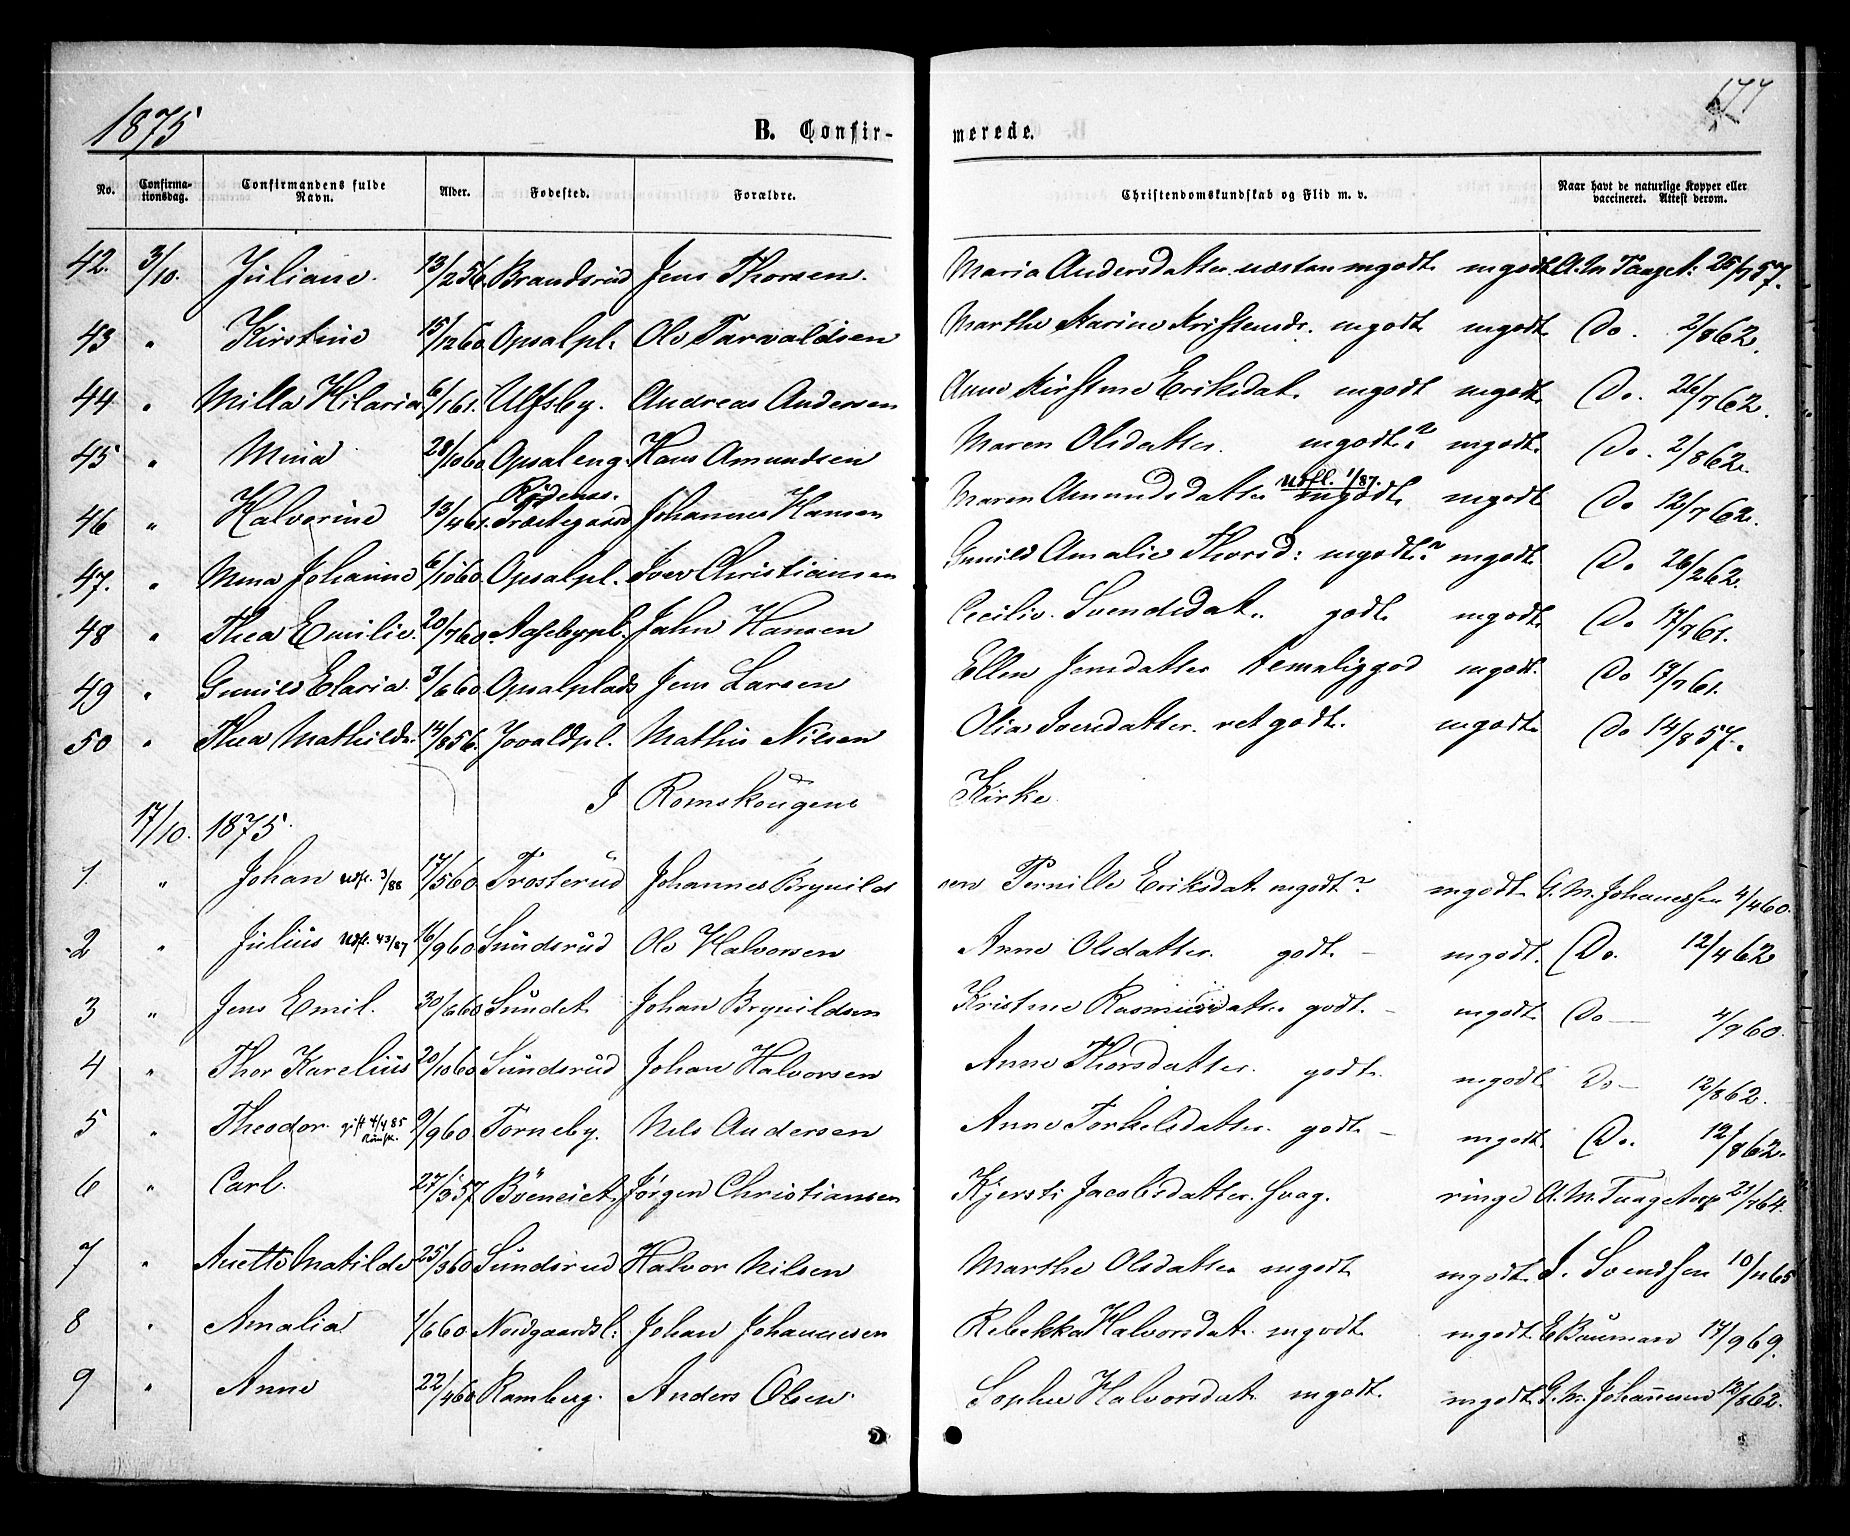 1875 B. Confir- merede. 177
No. Confirma-tionsdag. Confirmandens fulde Navn. Alder. Fødested. Forældre. Christendomskundskab og Flid m. v. Naar havt de naturlige Kopper eller vaccineret. Attest derom.
42. 3/10. Juliane. 13/2 56. Brandsrud Jens Thorsen. Maria Andersdatter. næsten mgodt. mgodt A. M. Taaget: 26/7 57.
43 " Kirstine 15/12 60. Opsalpl. Ole Tarvaldsen Marthe Karine Kristensdr. mgodt mgodt Do. 2/8 62.
44 " Milla Hilaria 6/1 61. Ulfsby. Andreas Andersen Anne Kirstine Eriksdat. mgodt mgodt. Do. 26/7 62.
45 " Mina 28/10 60 Opsaleng. Hans Amundsen Maren Olsdatter. mgodt? mgodt. Do. 2/8 62.
46 " Halvorine 13/4 61. Rødenæs. Præstegaard Johannes Hansen Maren Amundsdatter Udfl. 1/87. mgodt. mgodt Do 12/7 62.
47. " Mina Johanne 6/10 60. Opsalpl. Iver Christiansen Gunild Amalie Thorsd: mgodt? mgodt. Do 26/2 62.
48 " Thea Emilie. 20/7 60. Aasebypl. John Hansen Cecilie. Svendsdat. godt. mgodt. Do 17/7 61.
49 " Gunild Elaria. 3/6 60 Opsalplads Jens Larsen Ellen Jensdatter temaliggod mgodt. Do 17/7 61.
50 " Thea Mathilde. 14/8 56. Jovaldpl. Mathis Nilsen Olia Iversdatter. ret godt. mgodt. Do 14/8 57.
I Romskougens Kirke
17/10. 1875.
1. " Johan Udfl. 3/88 17/5 60. Trosterud Johannes Brynild sen Pernille Eriksdat. mgodt? mgodt. G. M. Johanessen 4/4 60.
2 " Julius Udfl. 43/87 16/9 60 Sundsrud Ole Halvorsen Anne Olsdatter. godt. - mgodt. Do. 12/4 62
3 " Jens Emil. 30/6 60 Sundet Johan Brynildsen Kristine Rasmusdatter godt. - mgodt. Do - 4/9 60.
4 " Thor Karelius 20/10 60 Sundsrud Johan Halvorsen Anne Thorsdatter. godt. mgodt. Do - 12/8 62.
5 " Theodor. gift 4/4 85 Römsk. 9/9 60. Torneby. Nils Andersen Anne Torkelsdatter. godt. - mgodt. Do. 12/8 62.
6 " Carl. 27/9 57 Jørgen Christiansen Kjersti Jacobsdatter. Svag. ringe A. M. 21/7 64.
7 " Anette Matilde 25/3 60 Sundsrud Halvor Nilsen Marthe Olsdatter mgodt mgodt. J. Svendsen 10/11 65
8 " Amalia 1/6 60 Nordgaardsl: Johan Johannesen Rebekka Halvorsdat. mgodt. mgodt E Bauman 17/9 69.
9 " Anne 22/4 60 Ramberg. Anders Olsen. Sophie Halvorsdat. mgodt. mgodt. G. M. Johannesen 12/8 62.